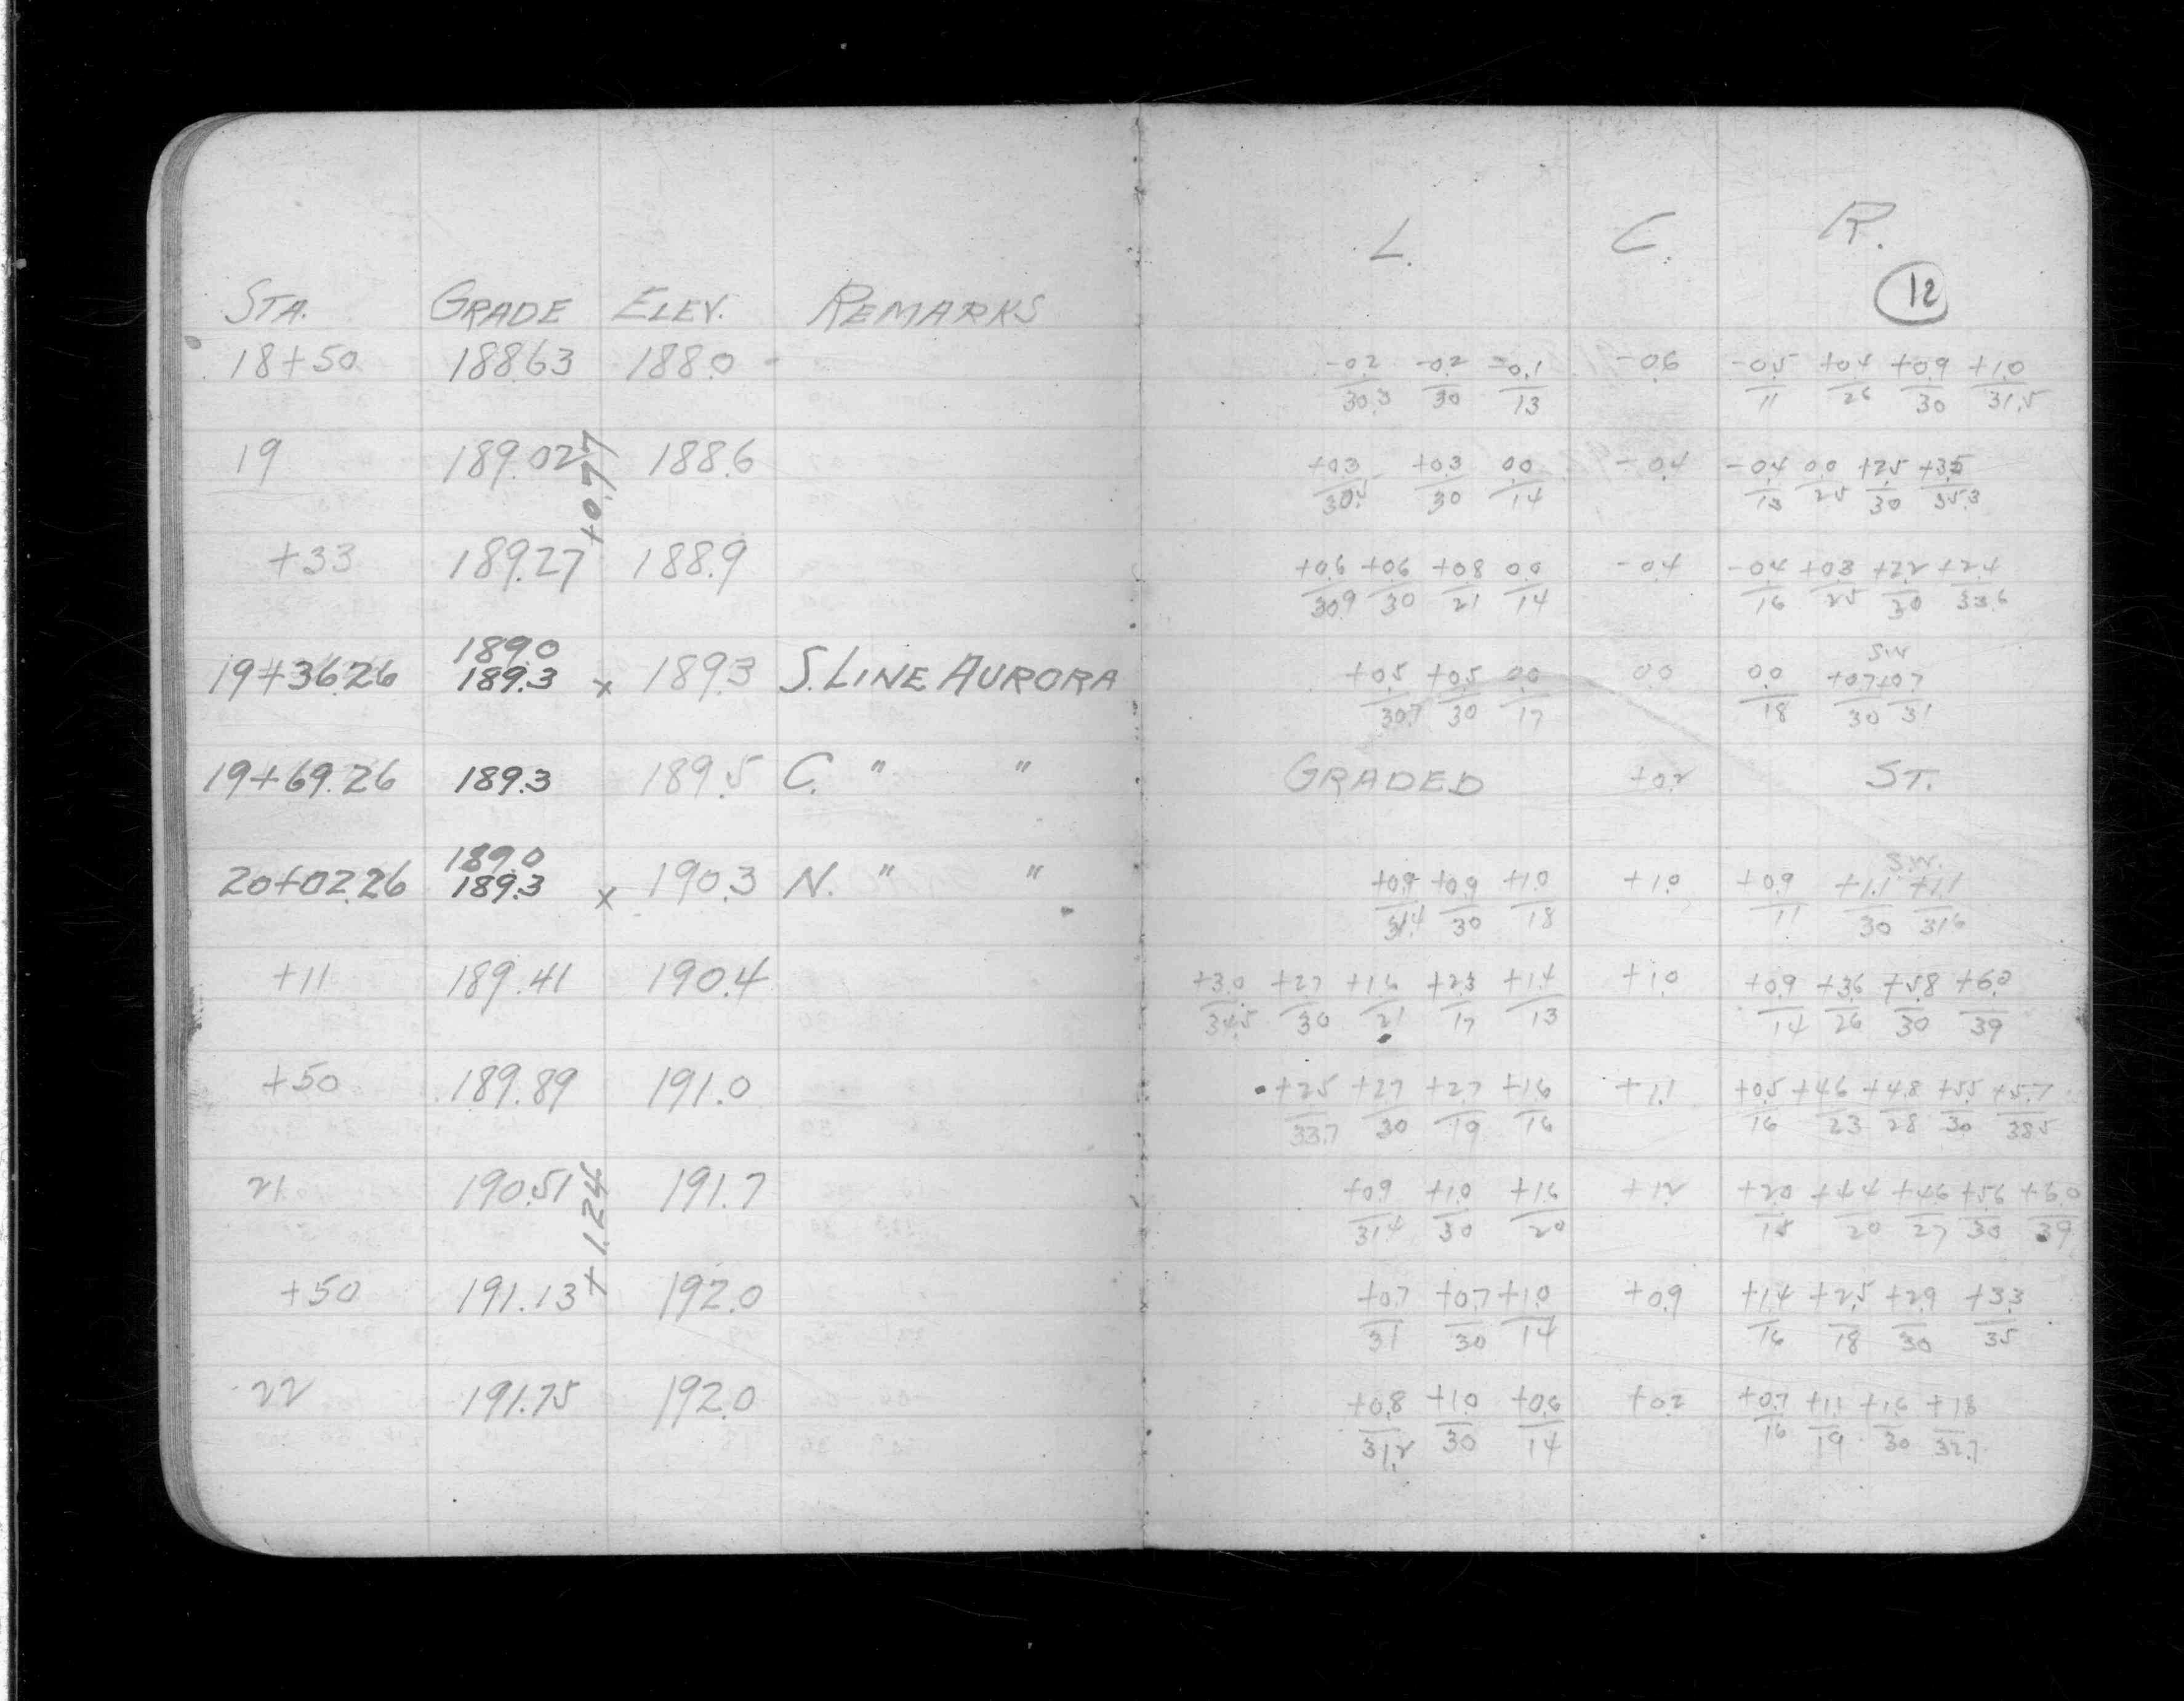 L. C. R.
12
STA. GRADE ELEV. REMARKS
18+50 188.63 188.0 -0.2/30.3 -0.2/30 -0.1/13 -0.6 -0.5/11 +0.4/26 +0.9/30 +1.0/31.5
19 189.02 188.6 +0.3/30.5 +0.3/30 0.0/14 -0.4 -0.4/13 0.0/25 +2.5/30 +3.5/35.3
+0.77
+33 189.27 188.9 +0.6/30.9 +0.6/30 +0.8/21 0.0/14 -0.4 -0.4/16 +0.8/25 +2.2/30 +2.4/33.6
189.0
SW
19+36.26 189.3 x 189.3 S. LINE AURORA +0.5/30.7 +0.5/30 0.0/17 0.0 0.0/18 +0.7/30 +0.7/31
19+69.26 189.3 189.5 C. " " GRADED +0.2 ST.
189.0
S.W.
20+02.26 189.3 x 190.3 N. " " +0.9/31.4 +0.9/30 +1.0/18 +1.0 +0.9/11 +1.1/30 +1.1/31.6
+11 189.41 190.4 +3.0/34.5 +2.7/30 +1.6/21 +2.3/17 +1.4/13 +1.0 +0.9/14 +3.6/26 +5.8/30 +6.0/39
+50 189.89 191.0 +2.5/33.7 +2.7/30 +2.7/19 +1.6/16 +1.1 +0.5/16 +4.6/23 +4.8/28 +5.5/30 +5.7/38.5
21 190.51 191.7 +0.9/31.4 +1.0/30 +1.6/20 +1.2 +2.0/15 +4.4/20 +4.6/27 +5.6/30 +6.0/39
+1.24
+50 191.13 192.0 +0.7/31 +0.7/30 +1.0/14 +0.9 +1.4/16 +2.5/18 +2.9/30 +3.3/35
22 191.75 192.0 +0.8/31.2 +1.0/30 +0.6/14 +0.2 +0.7/16 +1.1/19 +1.6/30 +1.8/32.7